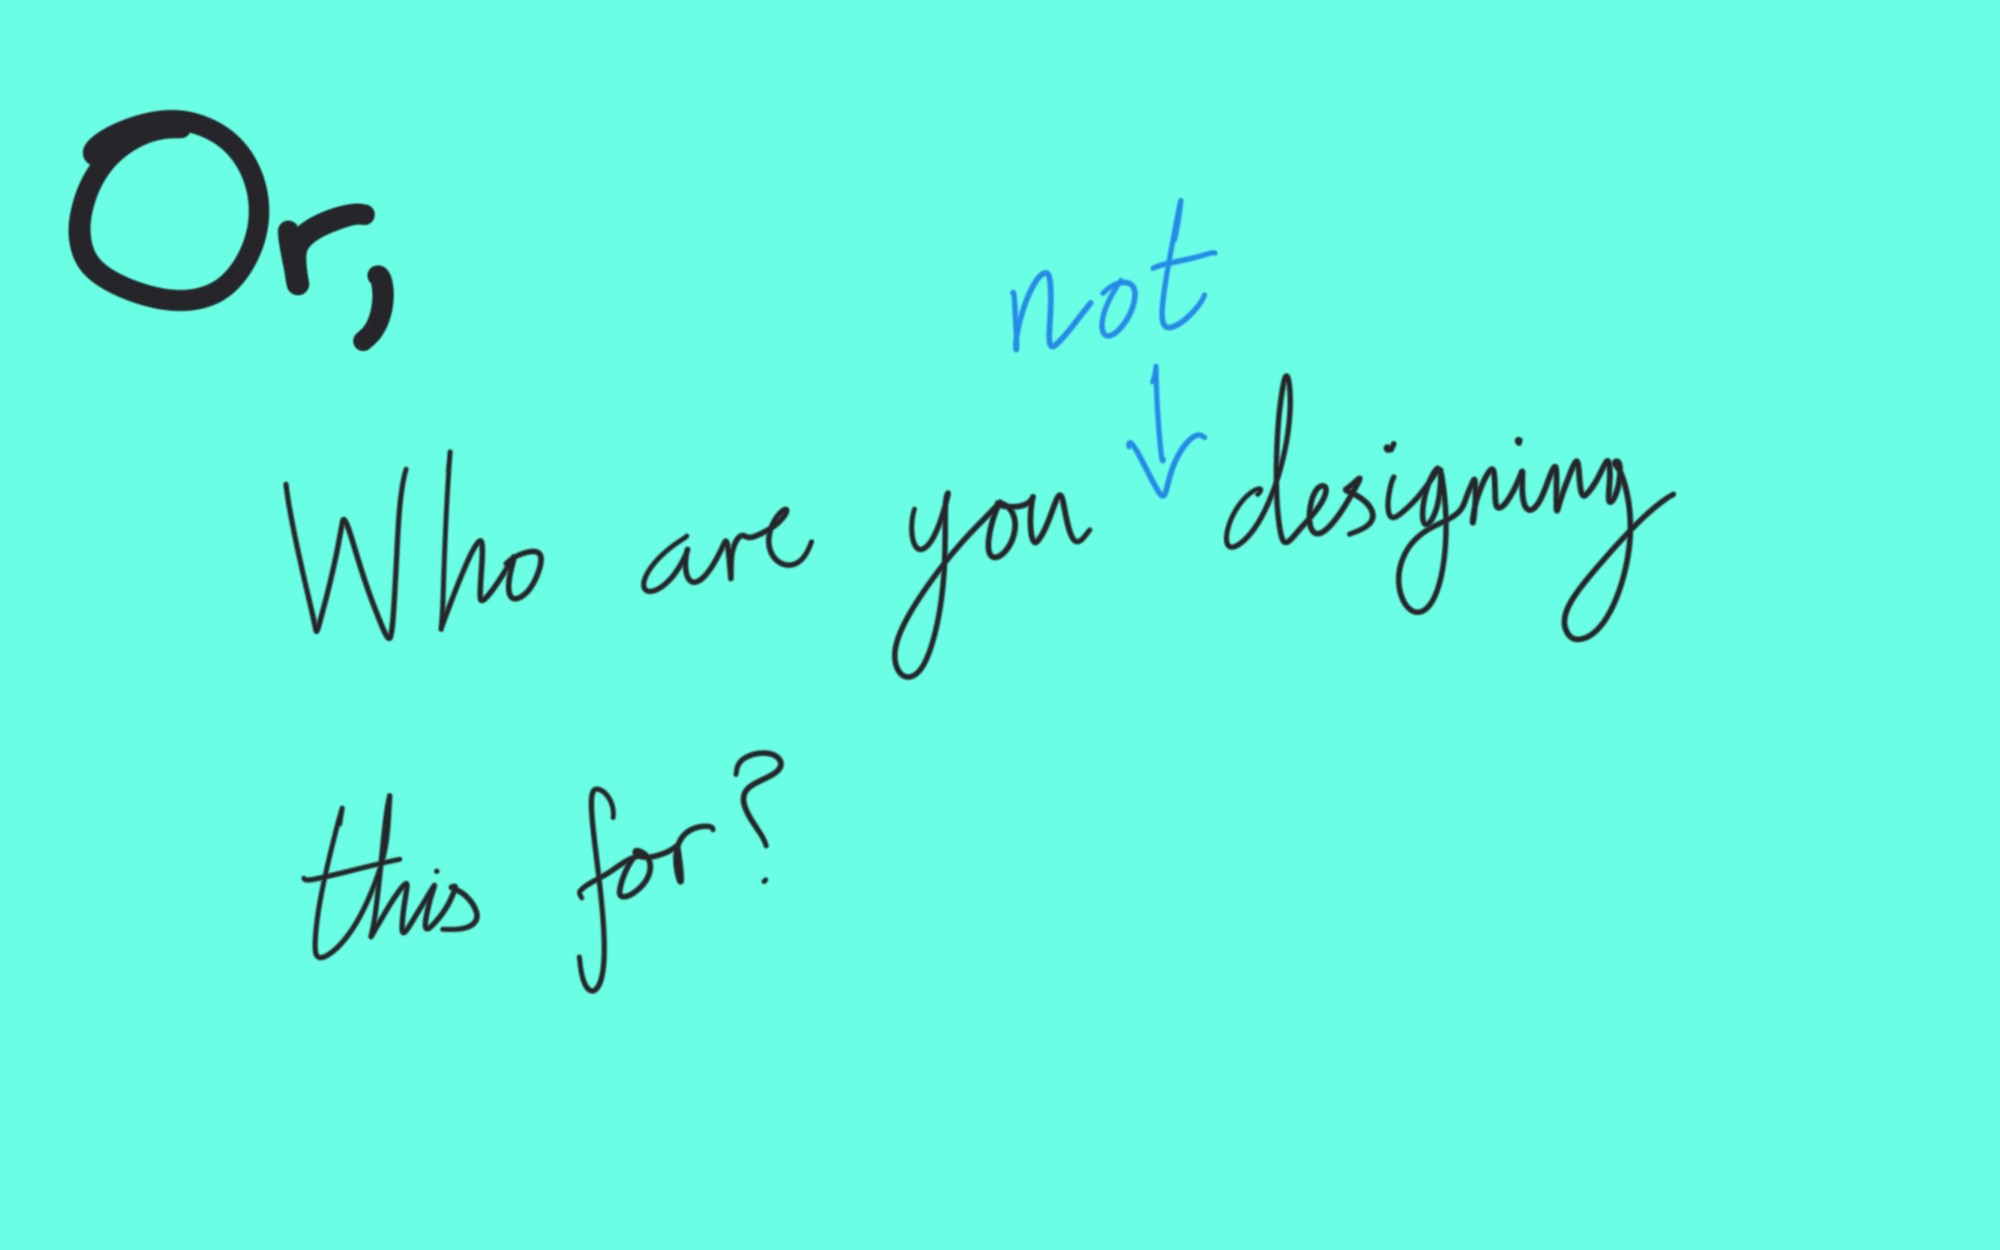 Or,
not
Who are you designing
this for?